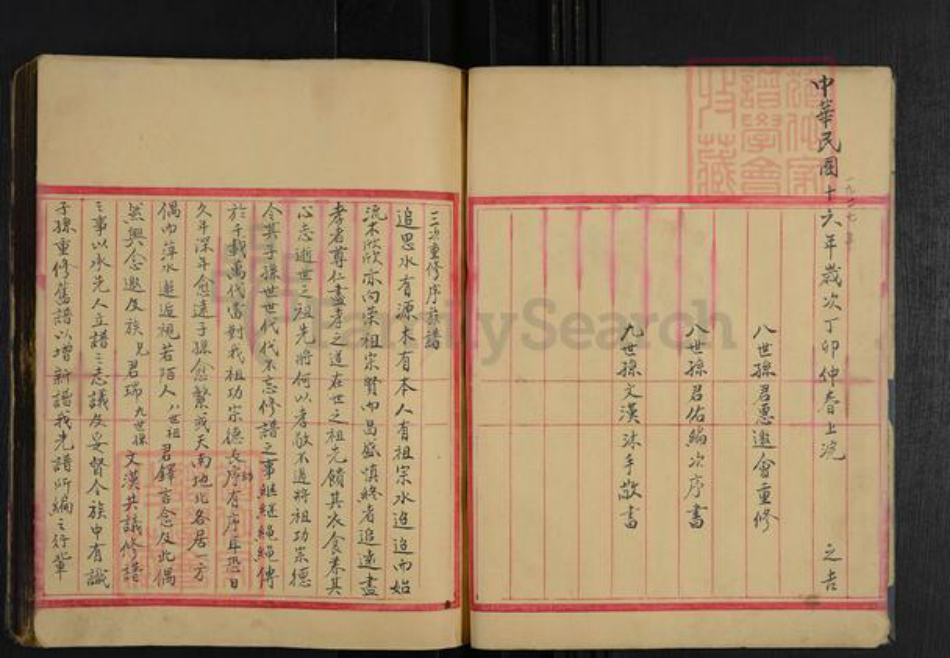 中華民國十六年歲次丁卯仲春上浣 之吉
一九二七年
八世孫君惠邀會重修
八世孫君佑編次序書
九世孫文漢沐手敬書
三次重修序族譜
追思水有源木有本人有祖宗水迢迢而始
流木欣欣亦向榮祖宗賢而昌盛慎終者追遠盡
孝者尊仁盡孝之道在世之祖先饋其衣食養其
心志逝世之祖先將何以孝敬不過將祖功宗德
令其子孫世世代代不忘修譜之事繼繼繩繩傳
於千載萬代當對我祖功宗德長序有序耳恐日
久年深年愈遠子孫愈繁或天南地北各居一方
偶而萍水邂逅視若陌人八世祖君鐸言念及此偶
然興念邀及族兄君瑞九世孫文漢共議修譜
之事以承先人立譜之志議及妥督令族中有識
子孫重修舊譜以增新譜我先譜所編之行輩
FamilySearch